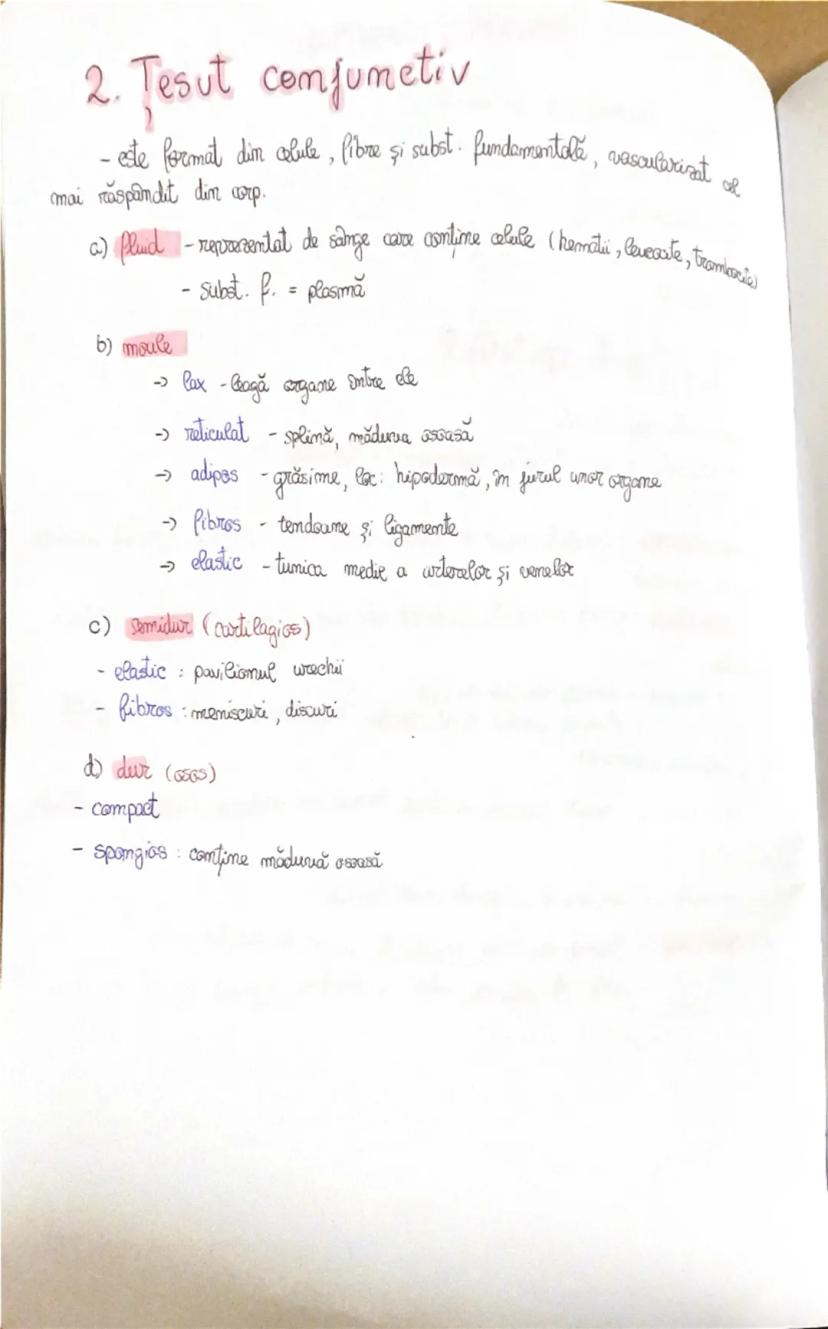 2. Țesut conjunctiv
- este format din celule, fibre și subst. fundamentală, vascularizat cel
mai răspândit din corp.
a) fluid - reprezentat de sânge care conține celule (hematii, leucocite, trombocite)
- subst. f. = plasmă
b) moale
-> lax - leagă organe între ele
-> reticulat - splină, măduva osoasă
-> adipos - grăsime, loc: hipodermă, în jurul unor organe
-> fibros - tendoane și ligamente
-> elastic - tunica medie a arterelor și venelor
c) semidur (cartilagios)
- elastic : pavilionul urechii
- fibros : meniscuri, discuri
d) dur (osos)
- compact
- spongios : conține măduvă osoasă